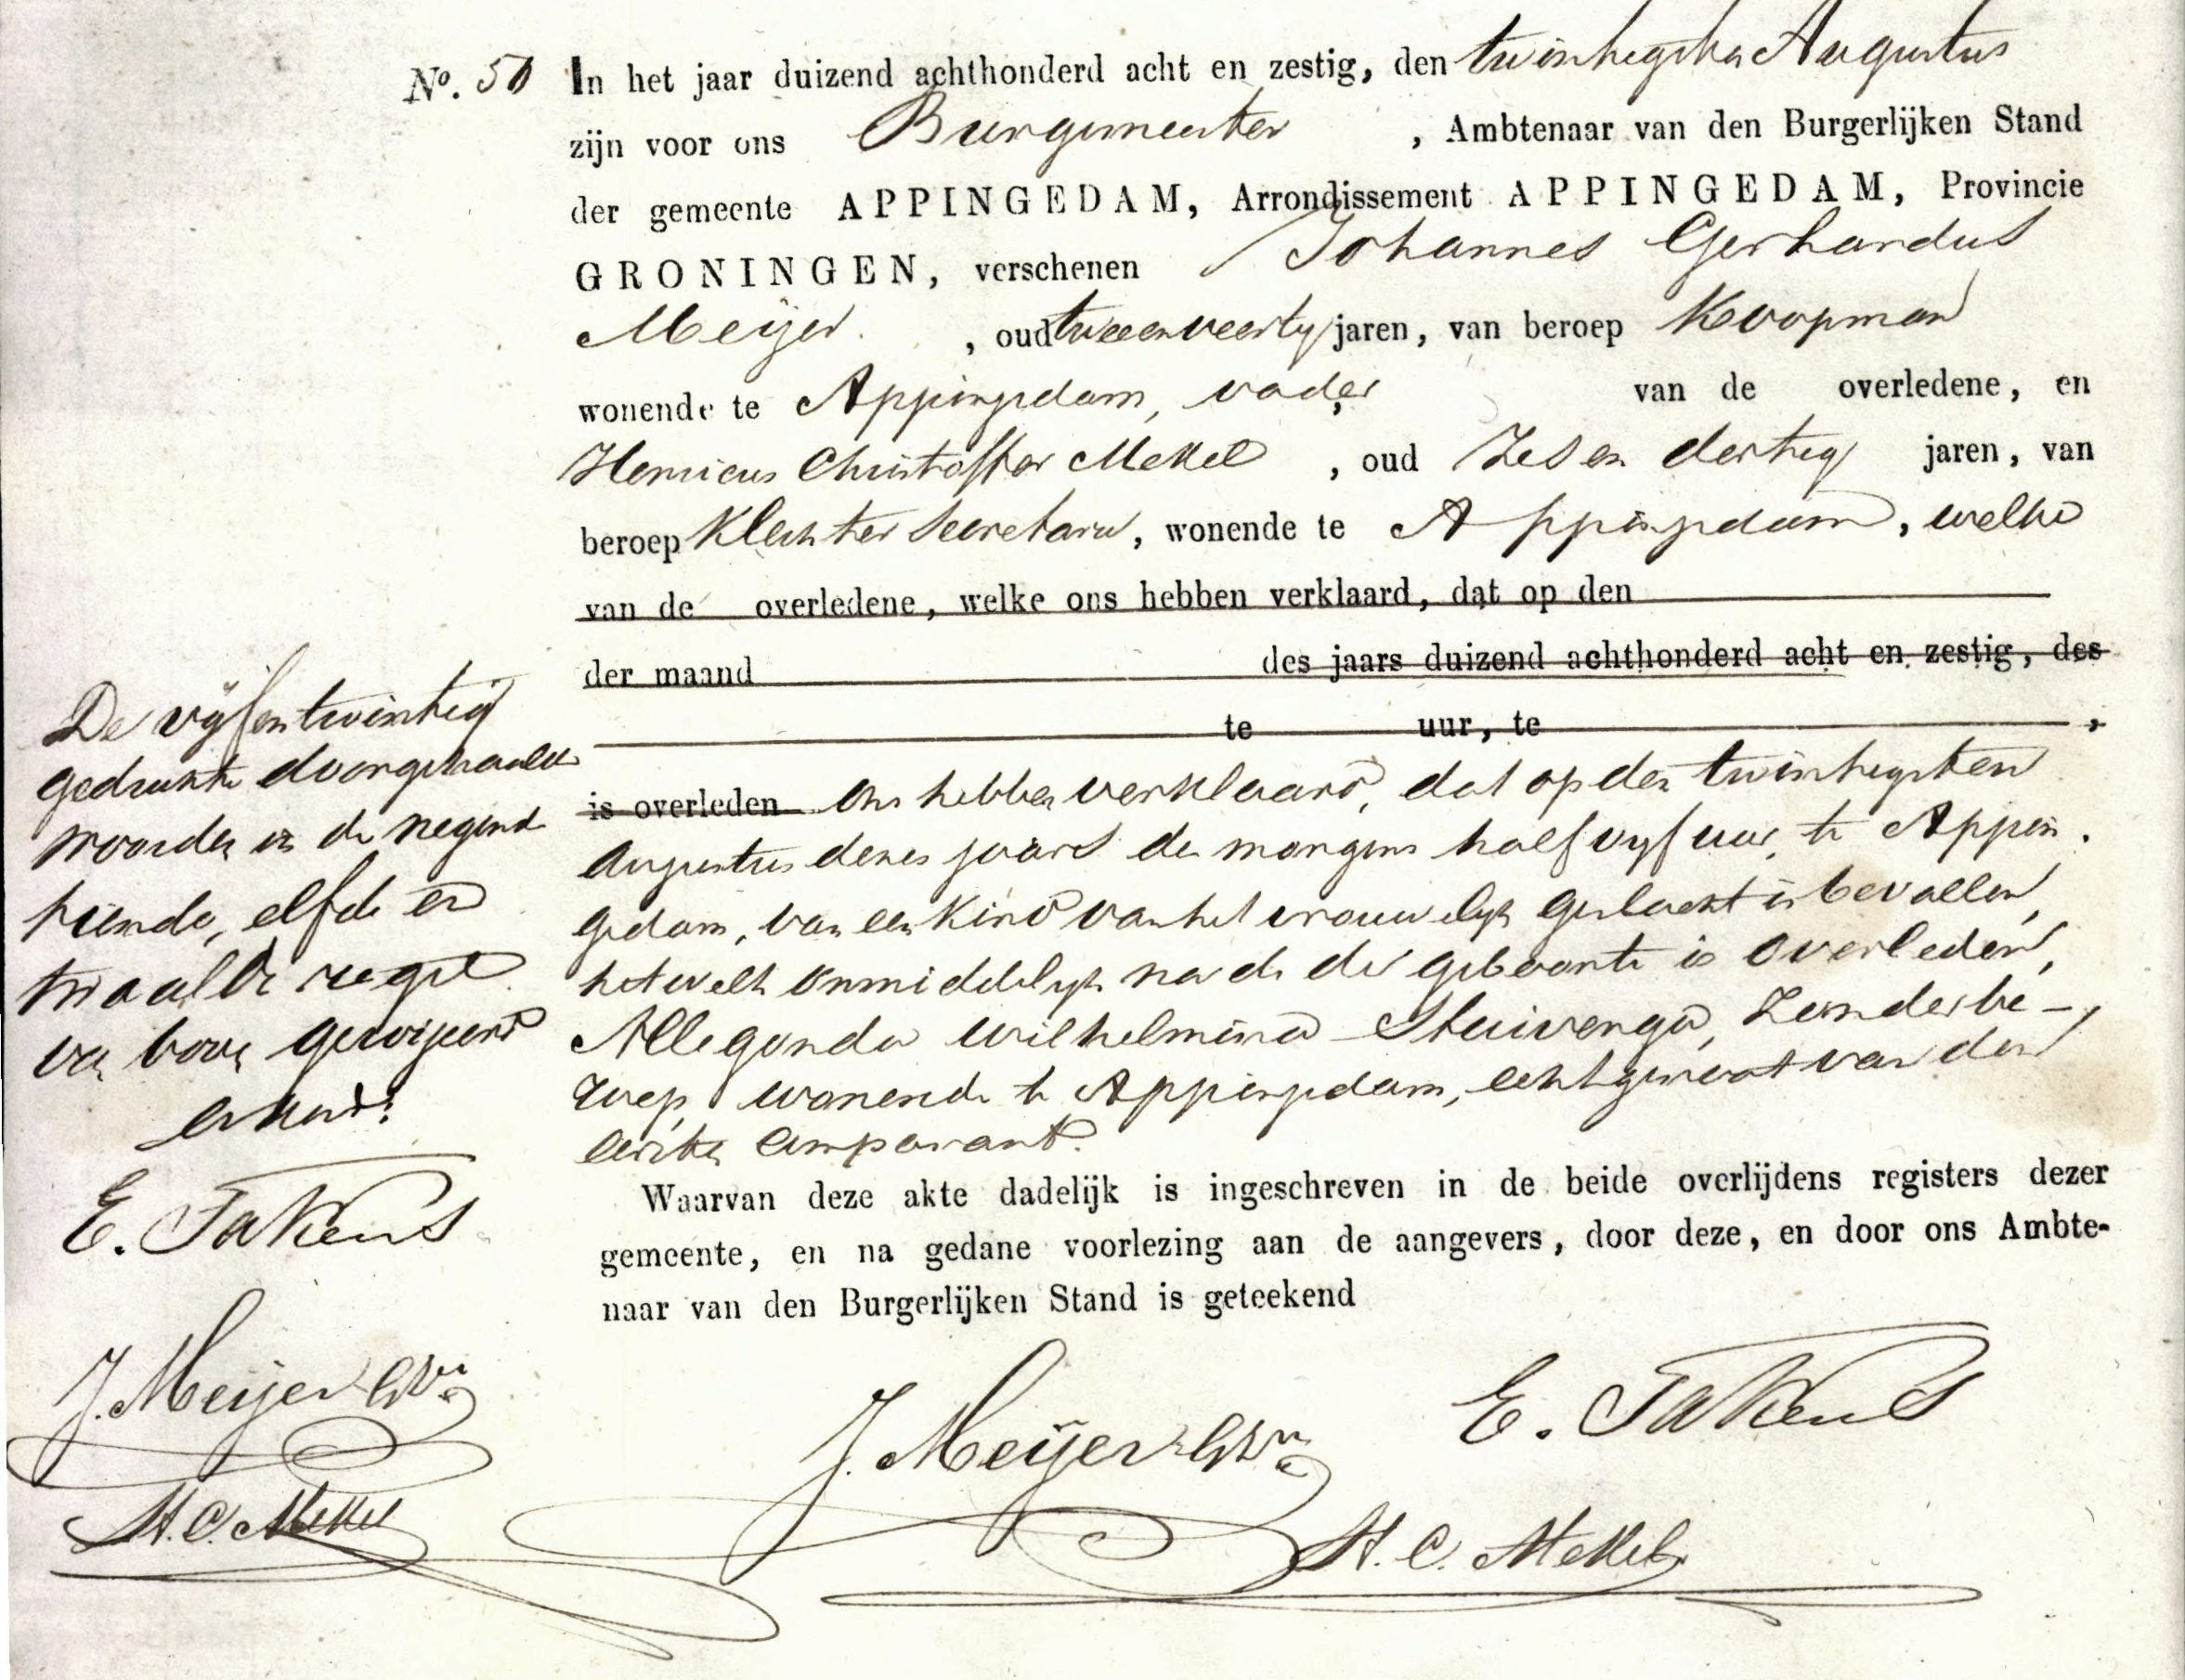 No. 50 In het jaar duizend achthonderd acht en zestig, den twintigsten Augustus
zijn voor ons Burgemeester , Ambtenaar van den Burgerlijken Stand
der gemeente APPINGEDAM, Arrondissement APPINGEDAM, Provincie
GRONINGEN, verschenen Johannes Gerhardus
Meijer , oud tweeenveertig jaren, van beroep Koopman
wonende te Appingedam, vader van de overledene, en
Henricus Christoffer Mekel , oud Zes en dertig jaren, van
beroep Klerk ter Secretarie, wonende te Appingedam, welke
van de overledene, welke ons hebben verklaard, dat op den
der maand des jaars duizend achthonderd acht en zestig, des
te uur, te ,
is overleden ons hebben verklaard, dat op den twintigsten
Augustus dezes jaars des morgens half vijf uur, te Appin
gedam, van een Kind van het vrouwelijk geslacht is bevallen,
hetwelk onmiddelijk na de geboorte is overleden,
Allegonda Wilhelmina Stuivenga, Zonder be-
roep, wonende te Appingedam, echtgenoot van den
eersten Comparant.
Waarvan deze akte dadelijk is ingeschreven in de beide overlijdens registers dezer
gemeente, en na gedane voorlezing aan de aangevers, door deze, en door ons Ambte-
naar van den Burgerlijken Stand is geteekend
De vijfentwintig
gedrukte doorgehaalde
woorden in de negende
tiende, elfde en
twaalfde regel
van boven gewijzerd
erkend:
E. Takens
J. Meijer
H. C. Mekel
J. Meijer
E. Takens
H. C. Mekel